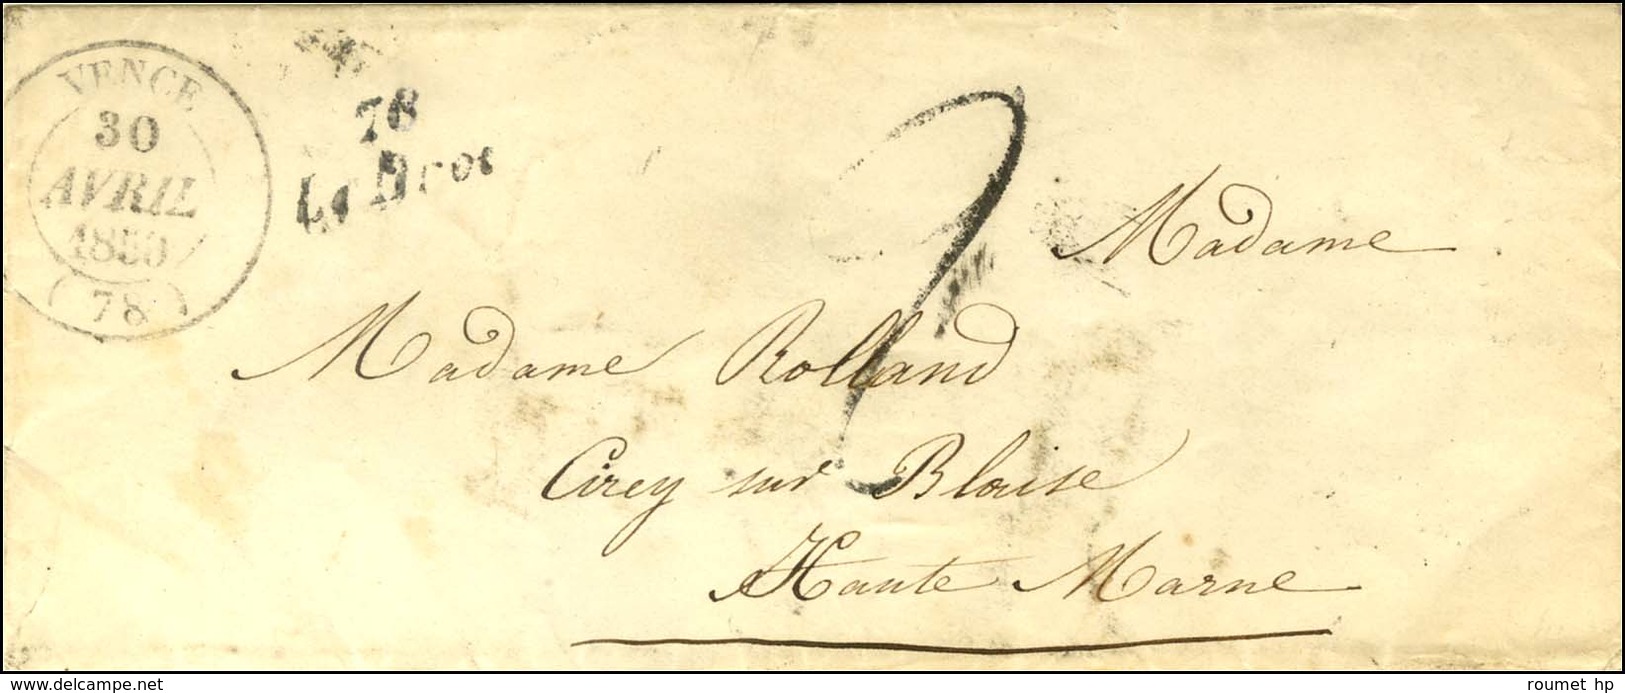 VENCE
30
AVRIL
1850
(78)
78
Le Broc
2
Madame
Madame Rolland
Cirey sur Blaise
Haute Marne
www.delcampe.net
roumet hp